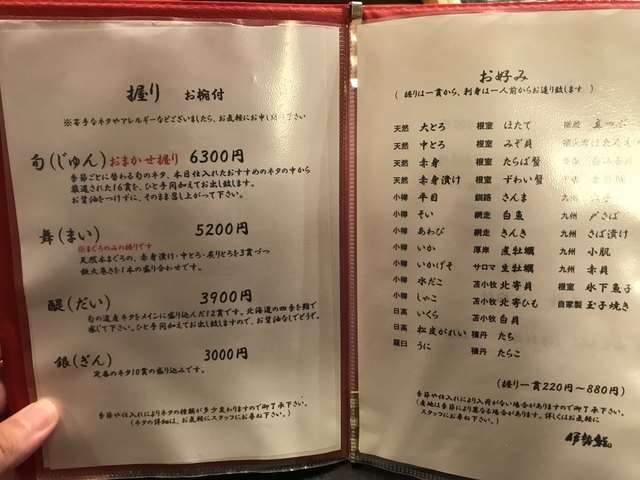 握り お椀付
※苦手なネタやアレルギーなどございましたら、お気軽にお申し下さい
旬(じゅん)おまかせ握り 6300円
季節ごとに替わる旬のネタ、本日仕入れたおすすめのネタの中から
厳選された16貫を、ひと手間加えてお出し致します。
お醤油をつけずに、そのまま召し上がって下さい。
舞(まい) 5200円
※まぐろのみの握りです
天然本まぐろの、赤身漬け・中とろ・炙りとろを3貫づつ
鉄火巻きを1本の盛り合わせです。
醍(だい) 3900円
旬の道産ネタをメインに盛り込んだ12貫です。北海道の四季を鮨で
感じて下さい。ひと手間加えてお出し致しますので、お醤油なしでどうぞ。
銀(ぎん) 3000円
定番のネタ10貫の盛り込みです。
季節や仕入れによりネタの種類が多少変わりますので御了承下さい。
(ネタの詳細は、お気軽にスタッフにお尋ね下さい。)
お好み
(握りは一貫から、刺身は一人前からお造り致します)
天然 大とろ 根室 ほたて
天然 中とろ 根室 みぞ貝
天然 赤身 根室 たらば蟹
天然 赤身漬け 根室 ずわい蟹
小樽 平目 釧路 さんま
小樽 そい 網走 白魚 九州 〆さば
小樽 あわび 網走 きんき 九州 さば漬け
小樽 いか 厚岸 煮牡蠣 九州 小肌
小樽 いかげそ サロマ 生牡蠣 九州 赤貝
小樽 水だこ 苫小牧 北寄貝 根室 氷下魚子
小樽 しゃこ 苫小牧 北寄ひも 自家製 玉子焼き
日高 いくら 苫小牧 白貝
日高 松皮がれい 積丹 たち
羅臼 うに 積丹 たらこ
(握り一貫220円~880円)
季節や仕入れにより入荷がない場合がありますので御了承下さい。
(産地は季節により異なる場合があります。詳しくはお気軽に
スタッフにお尋ね下さい。)
伊勢鮨